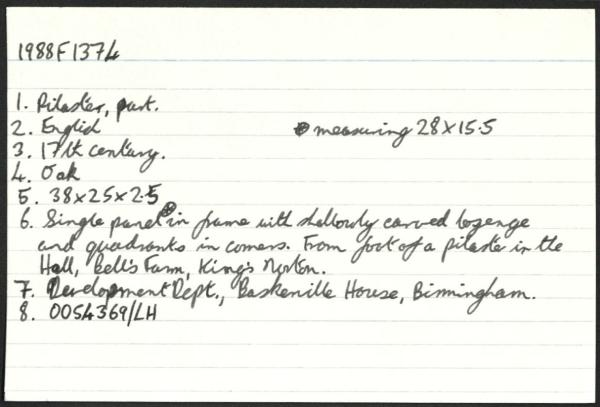 1988F1374
1. Pilaster, part.
2. English ⊛ measuring 28x15.5
3. 17th century.
4. Oak
5. 38x25x2.5
6. Single panel ⊛ in frame with shallowly carved lozenge
and quadrants in corners. From foot of a pilaster in the
Hall, Bell's Farm, King's Norton.
7. Development Dept., Baskerville House, Birmingham.
8. 0054369/LH